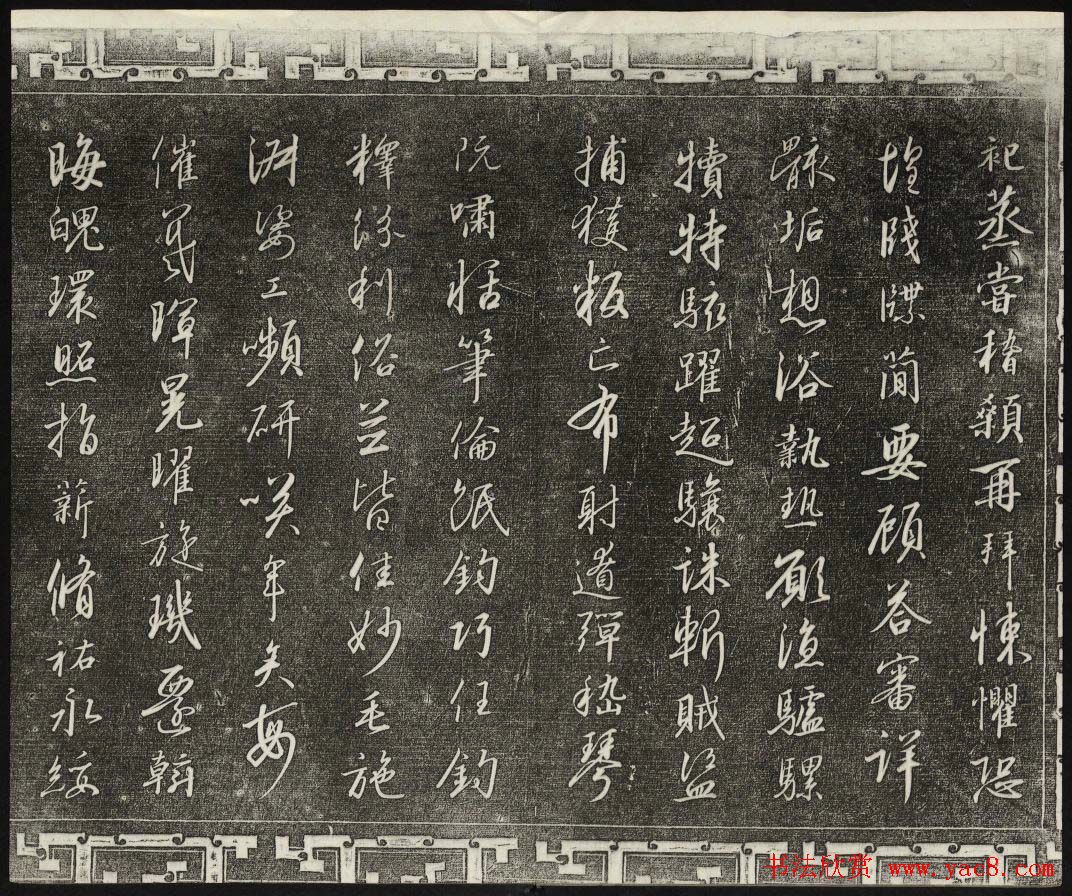 祀蒸嘗稽顙再拜悚懼恐
惶牋牒簡要顧荅審詳
骸垢想浴執熱願涼驢騾
犢特駭躍超驤誅斬賊盜
捕獲叛亡布射遼彈嵇琴
阮嘯恬筆倫紙鈞巧任鈎
釋紛利俗並皆佳妙毛施
淑姿工嚬研咲年矢每
催羲暉晃曜旋璣懸斡
晦魄環照指薪脩祐永綏
书法欣赏 www.yac8.com